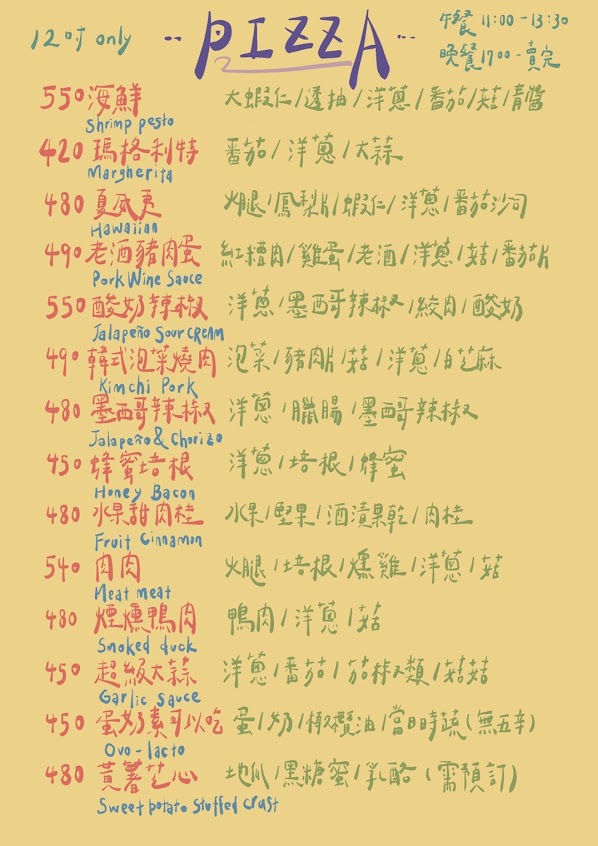 12吋 only
PIZZA
午餐 11:00-13:30
晚餐 17:00-賣完
550 海鮮 大蝦仁/透抽/洋蔥/番茄/菇/青醬
Shrimp pesto
420 瑪格利特 番茄/洋蔥/大蒜
Margherita
480 夏威夷 火腿/鳳梨片/蝦仁/洋蔥/番茄沙司
Hawaiian
490 老酒豬肉蛋 紅糟肉/雞蛋/老酒/洋蔥/菇/番茄片
Pork Wine Sauce
550 酸奶辣椒 洋蔥/墨西哥辣椒/絞肉/酸奶
Jalapeño Sour CREAM
490 韓式泡菜燒肉 泡菜/豬肉片/菇/洋蔥/白芝麻
Kimchi Pork
480 墨西哥辣椒 洋蔥/臘腸/墨西哥辣椒
Jalapeño & Chorizo
450 蜂蜜培根 洋蔥/培根/蜂蜜
Honey Bacon
480 水果甜肉桂 水果/堅果/酒漬果乾/肉桂
Fruit Cinnamon
540 肉肉 火腿/培根/燻雞/洋蔥/菇
Meat meat
480 煙燻鴨肉 鴨肉/洋蔥/菇
Smoked duck
450 超級大蒜 洋蔥/番茄/茄椒類/菇菇
Garlic sauce
450 蛋奶素可以吃 蛋/奶/橄欖油/當日時蔬(無五辛)
Ovo-lacto
480 黃薯芝心 地瓜/黑糖蜜/乳酪(需預訂)
Sweet potato stuffed crust